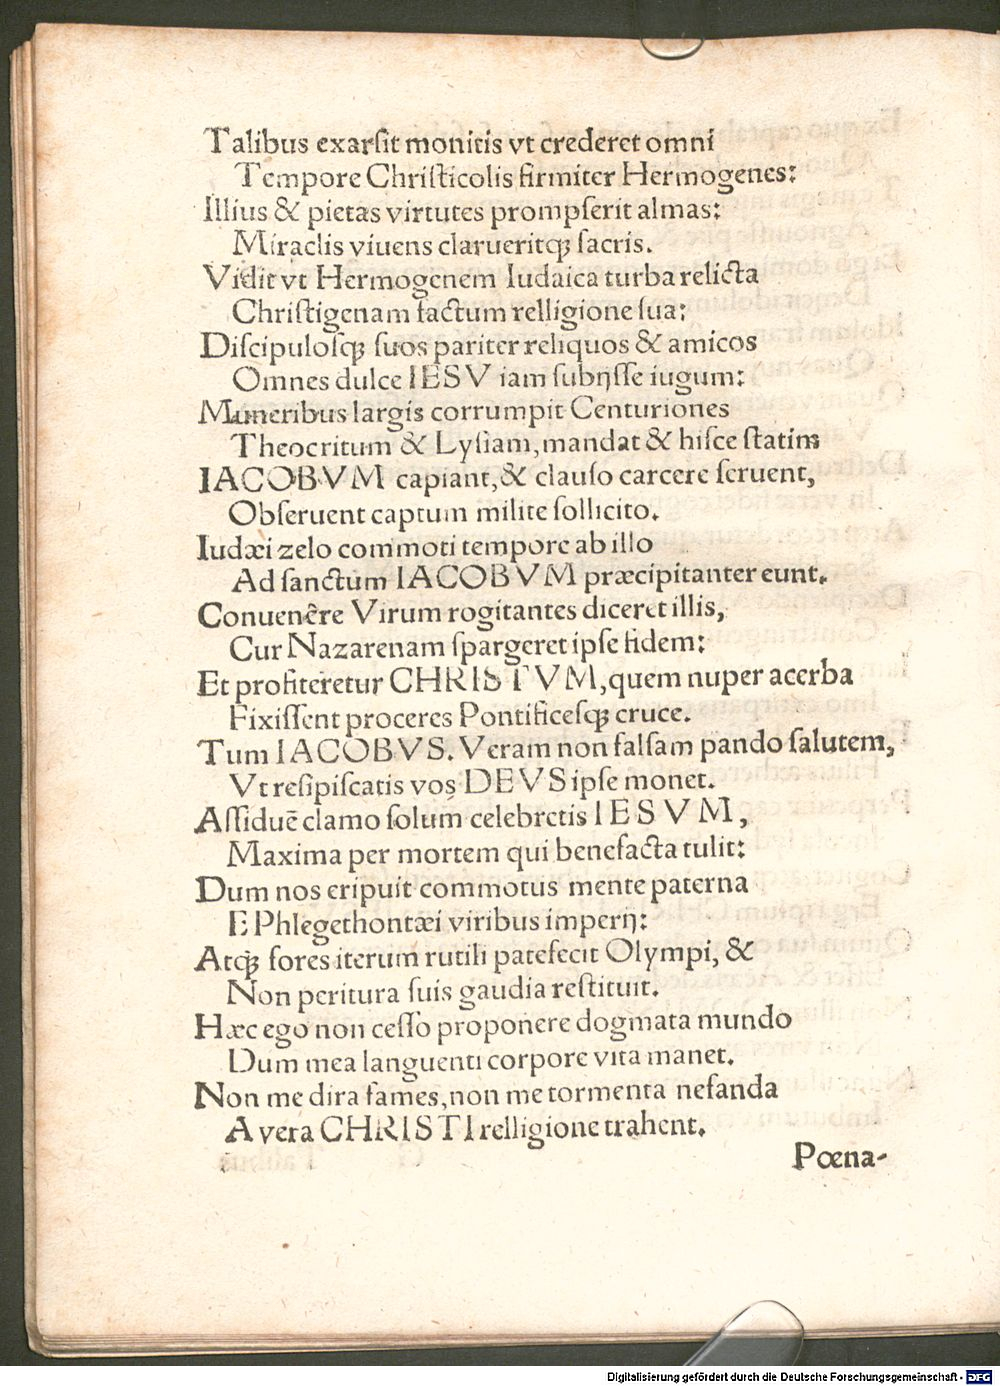 Talibus exarſit monitis vt crederet omni
Tempore Chriſticolis firmiter Hermogenes:
Illius & pietas virtutes prompſerit almas:
Miraclis viuens clarueritqꝫ ſacris.
Vidit vt Hermogenem Iudaica turba relicta
Chriſtigenam factum relligione ſua:
Diſcipuloſqꝫ ſuos pariter reliquos & amicos
Omnes dulce IESV iam ſubijſſe iugum:
Muneribus largis corrumpit Centuriones
Theocritum & Lyſiam, mandat & hiſce ſtatim
IACOBVM capiant, & clauſo carcere ſeruent,
Obſeruent captum milite ſollicito.
Iudæi zelo commoti tempore ab illo
Ad ſanctum IACOBVM præcipitanter eunt.
Conuenêre Virum rogitantes diceret illis,
Cur Nazarenam ſpargeret ipſe fidem:
Et profiteretur CHRISTVM, quem nuper acerba
Fixiſſent proceres Pontificeſqꝫ cruce.
Tum IACOBVS. Veram non falſam pando ſalutem,
Vt reſipiſcatis vos DEVS ipſe monet.
Aſſiduē clamo ſolum celebretis IESVM,
Maxima per mortem qui benefacta tulit:
Dum nos eripuit commotus mente paterna
E Phlegethontæi viribus imperij:
Atqꝫ fores iterum rutili patefecit Olympi, &
Non peritura ſuis gaudia reſtituit.
Hæc ego non ceſſo proponere dogmata mundo
Dum mea languenti corpore vita manet.
Non me dira fames, non me tormenta nefanda
A vera CHRISTI relligione trahent.
Pœna-
Digitalisierung gefördert durch die Deutsche Forschungsgemeinschaft - DFG